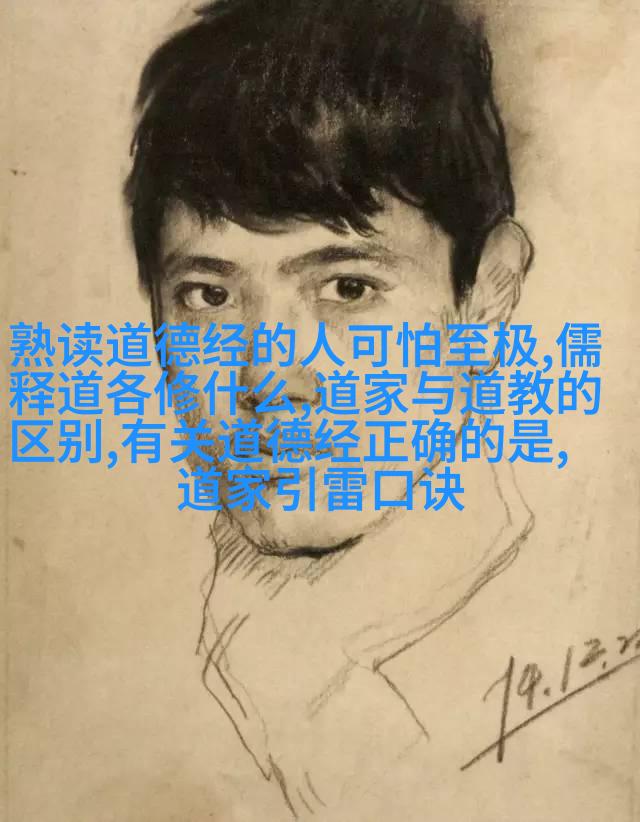 熟读道德经的人可怕至极,儒
释道各修什么,道家与道教的
区别,有关道德经正确的是,
道家引雷口诀